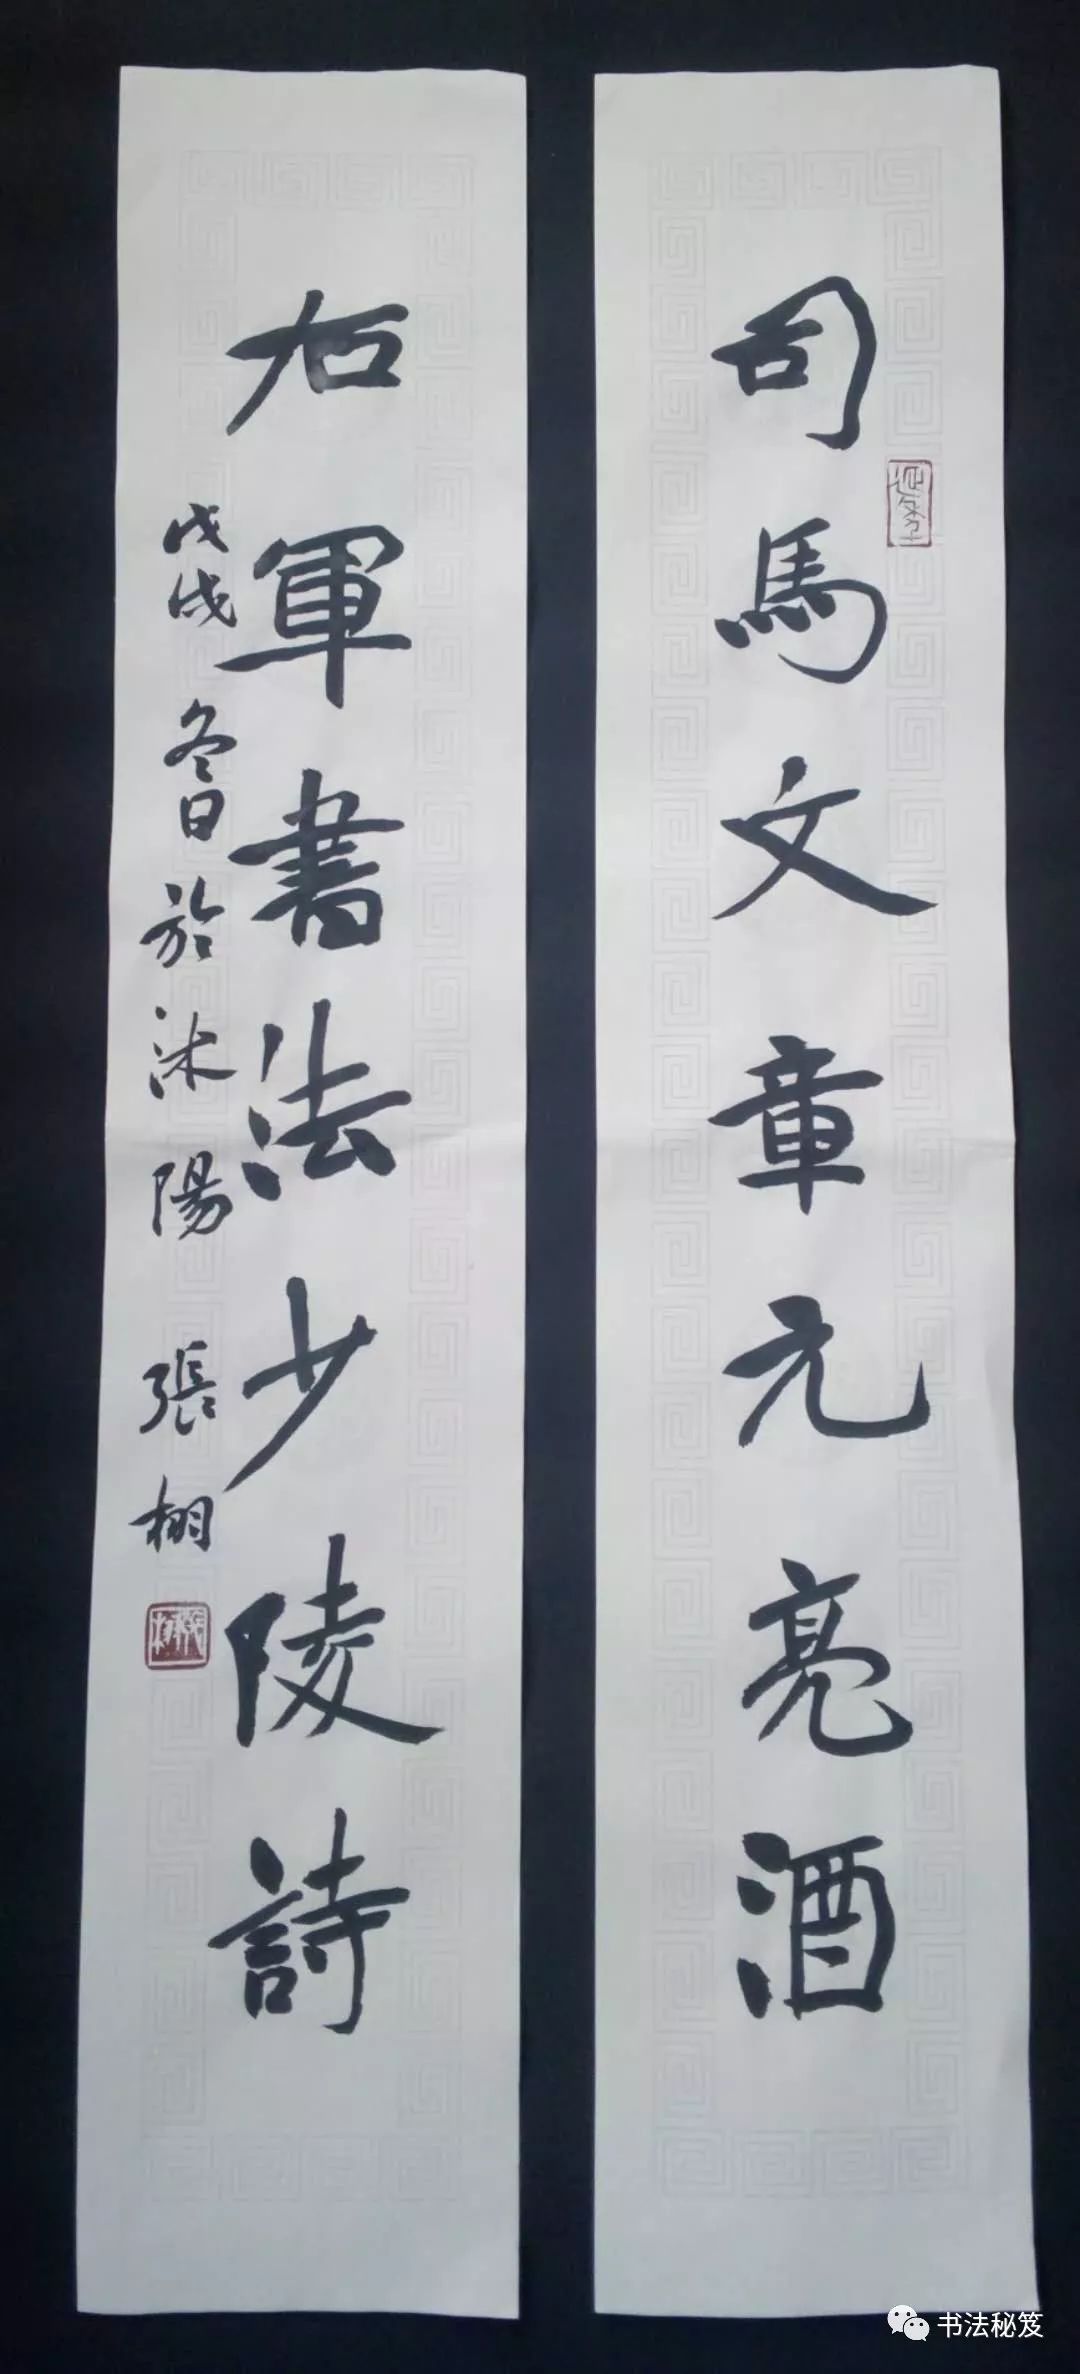 司馬文章元亮酒
右軍書法少陵詩
戊戌冬日於沭陽張栩
书法秘笈